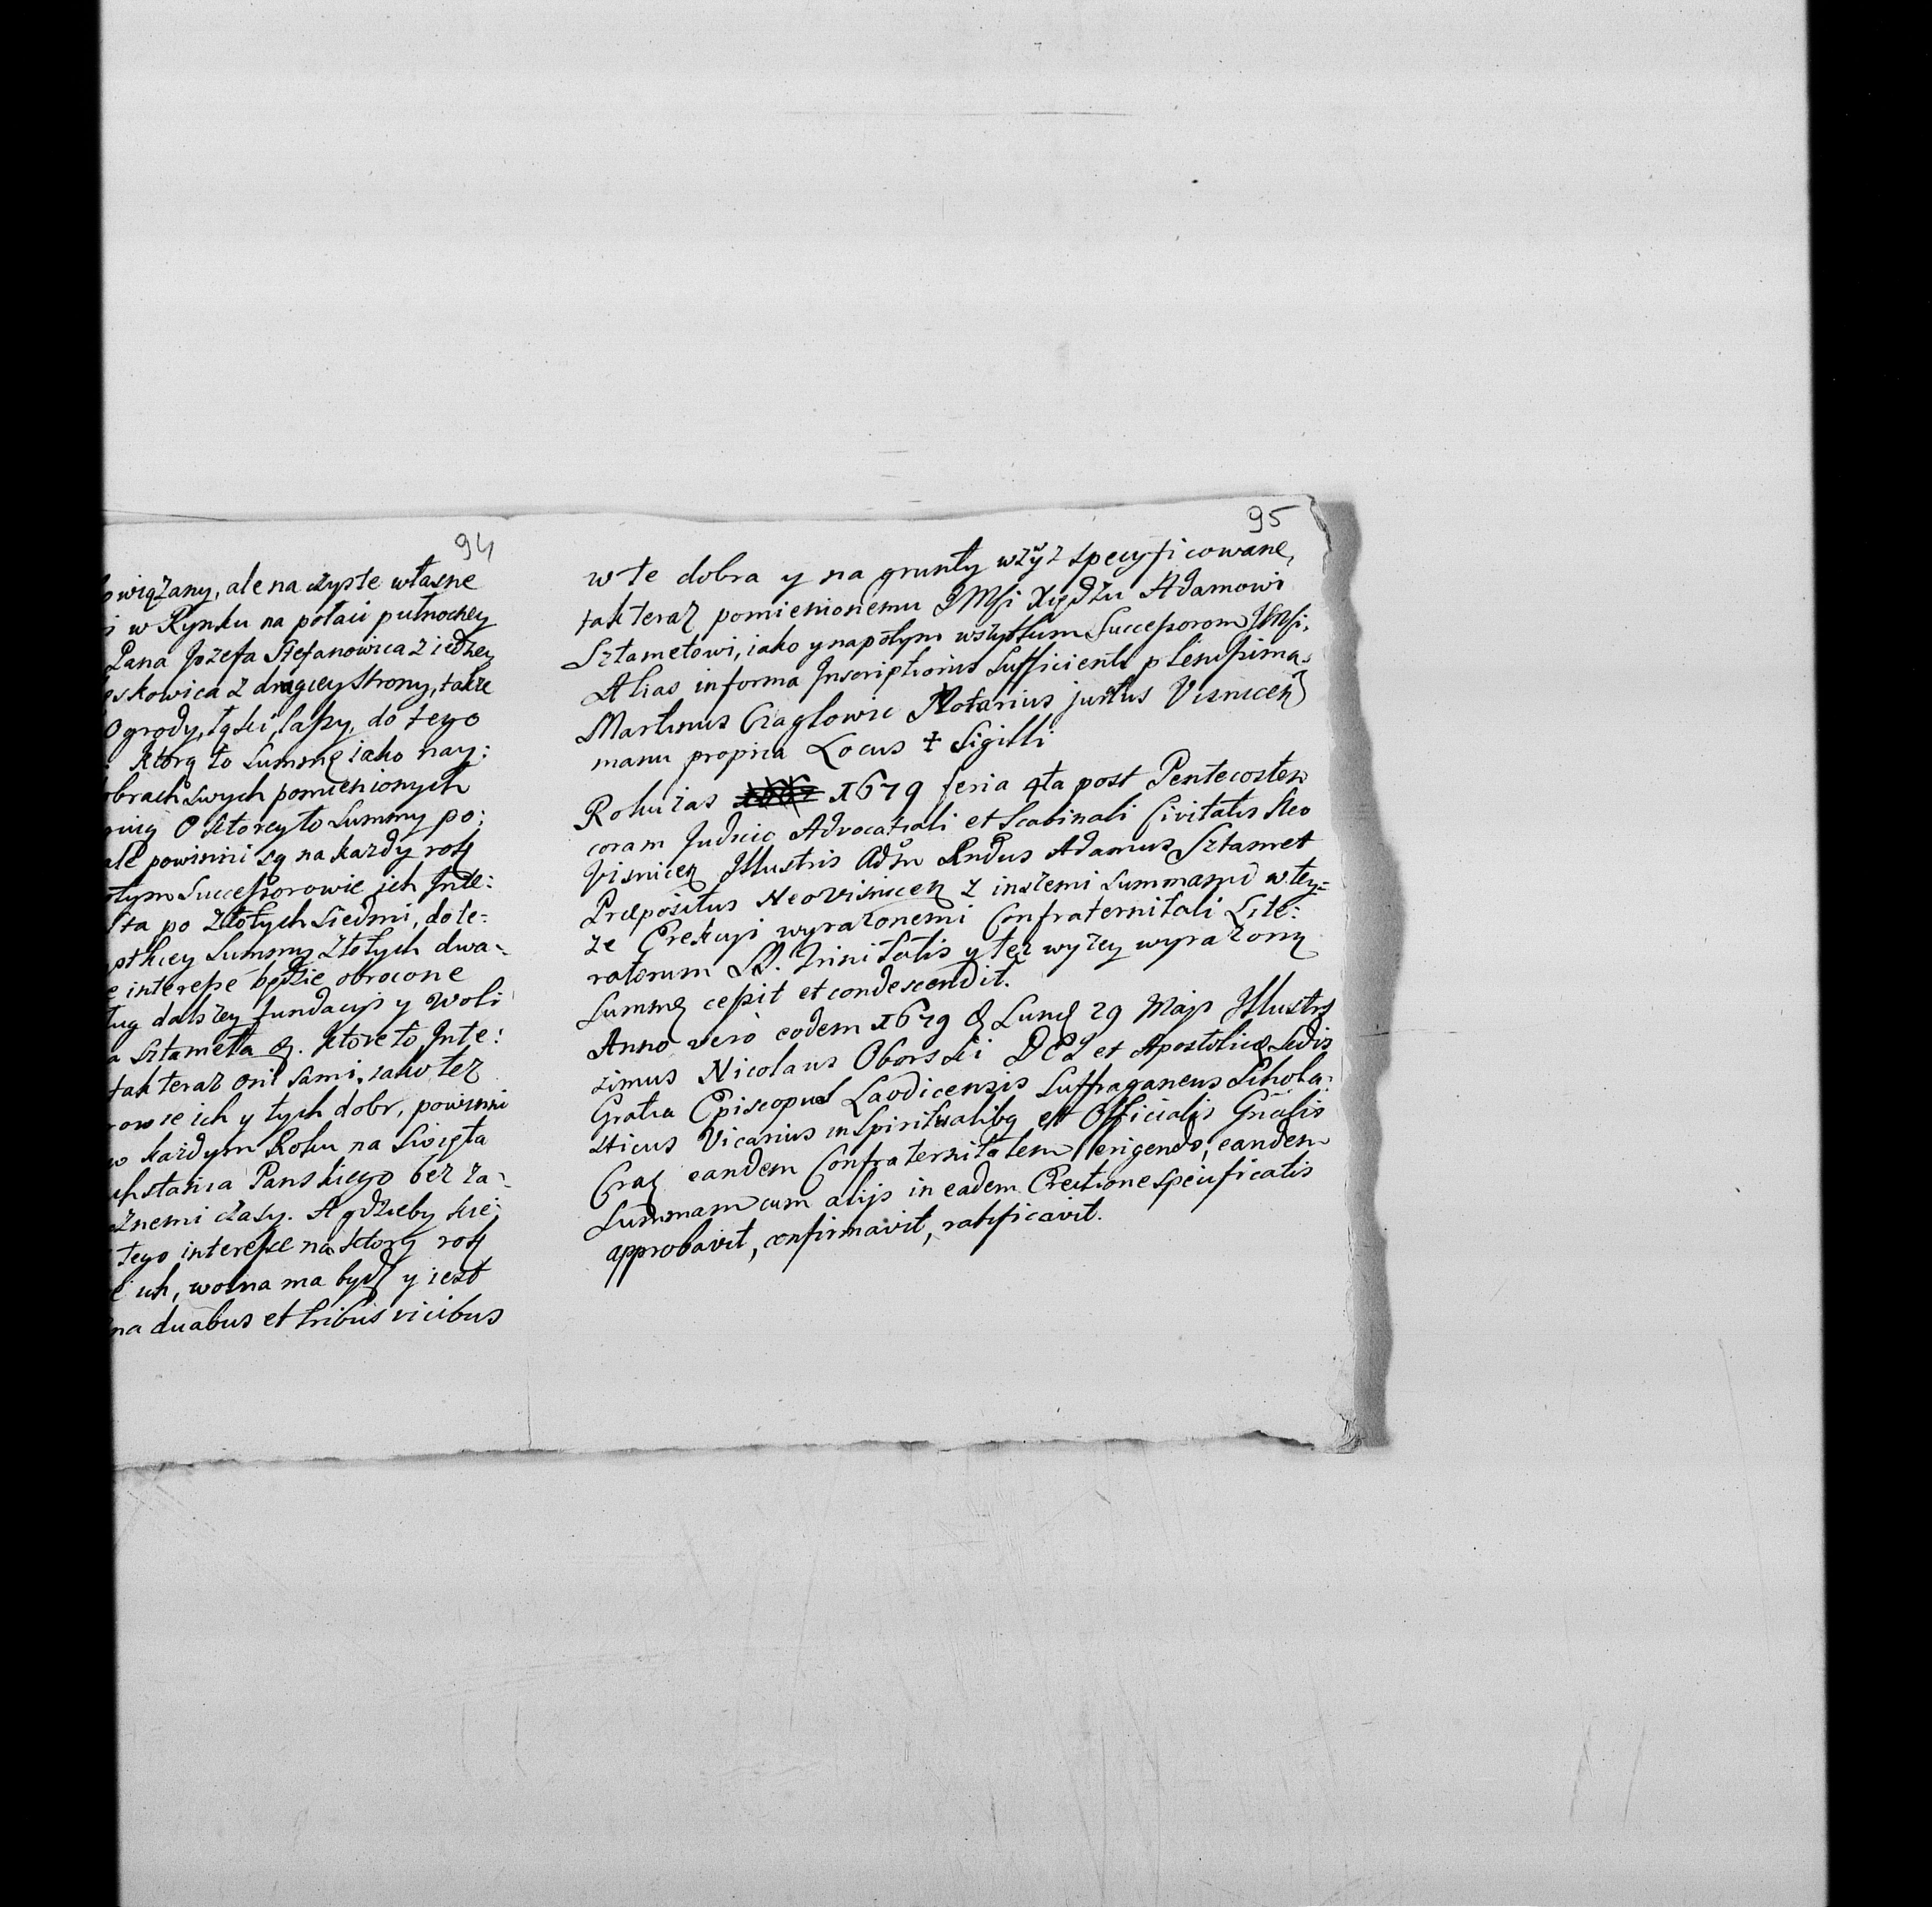 94
owiązany, ale na czyste własne
i w Rynku na połaci pułnocney
Pana Jozefa Stefanowica z iedney
eskowica z drugiey strony, także
Ogrody, łąki, lasy, do tego
Którą to Summę iako nay:
obrach swych pomienionych
O ktorey to Summy po:
ale powinni są na kazdy rok
otym Successorowie ich Inte:
sta po Złotych Siedmi, do te:
Summy Złotych dwa-
e interesse będzie obrocone
ug dalszey fundacyi y woli
a Sztameta &. Ktore to Inte:
tak teraz oni sami, iako tez
rowie ich y tych dobr, powinni
w kazdym Roku na Swięta
chstania Panskiego bez za-
znemi czasy. A gdzieby kie:
tego interesse na ktory rok
e ich, wolna ma bydz y iest
na duabus et tribus vicibus
95
w te dobra y na grunty wzwyż specyficowane,
tak teraz pomienionemu JMsi Xiędzu Adamowi
Sztametowi, iako y napotym wszystkim Successorom JMsi,
Alias in forma Inscriptionis Sufficienti plenissima.
Martinus Ciaglowic Notarius juŕtus Visnicen
manu propria Locus + Sigilli
Roku zas 1679 feria 4ta post Pentecosten
coram Judicio Advocatiali et Scabinali Civitatis Neo
Visnicen Illustris Adm Rndus Adamus Sztamet
Præpositus Neovisnicen z inszemi summami w tey=
ze Erekcyi wyrazonemi Confraternitati Lite:
ratorum SS. Trinitatis y tez wyzey wyrazoną
Summę cessit et condescendit.
Anno vero eodem 1679 & Lunæ 29 Maji Illustris
simus Nicolaus Oborski DEI et Apostolicæ Sedis
Gratia Episcopus Laodicensis Suffraganeus Schola:
sticus Vicarius in Spiritualibg et Officialis Gnalis
Crac eandem Confraternitatem erigendo, eandem
Summam cum alijs in eadem Erectione specificatis
approbavit, confirmavit, ratificavit.